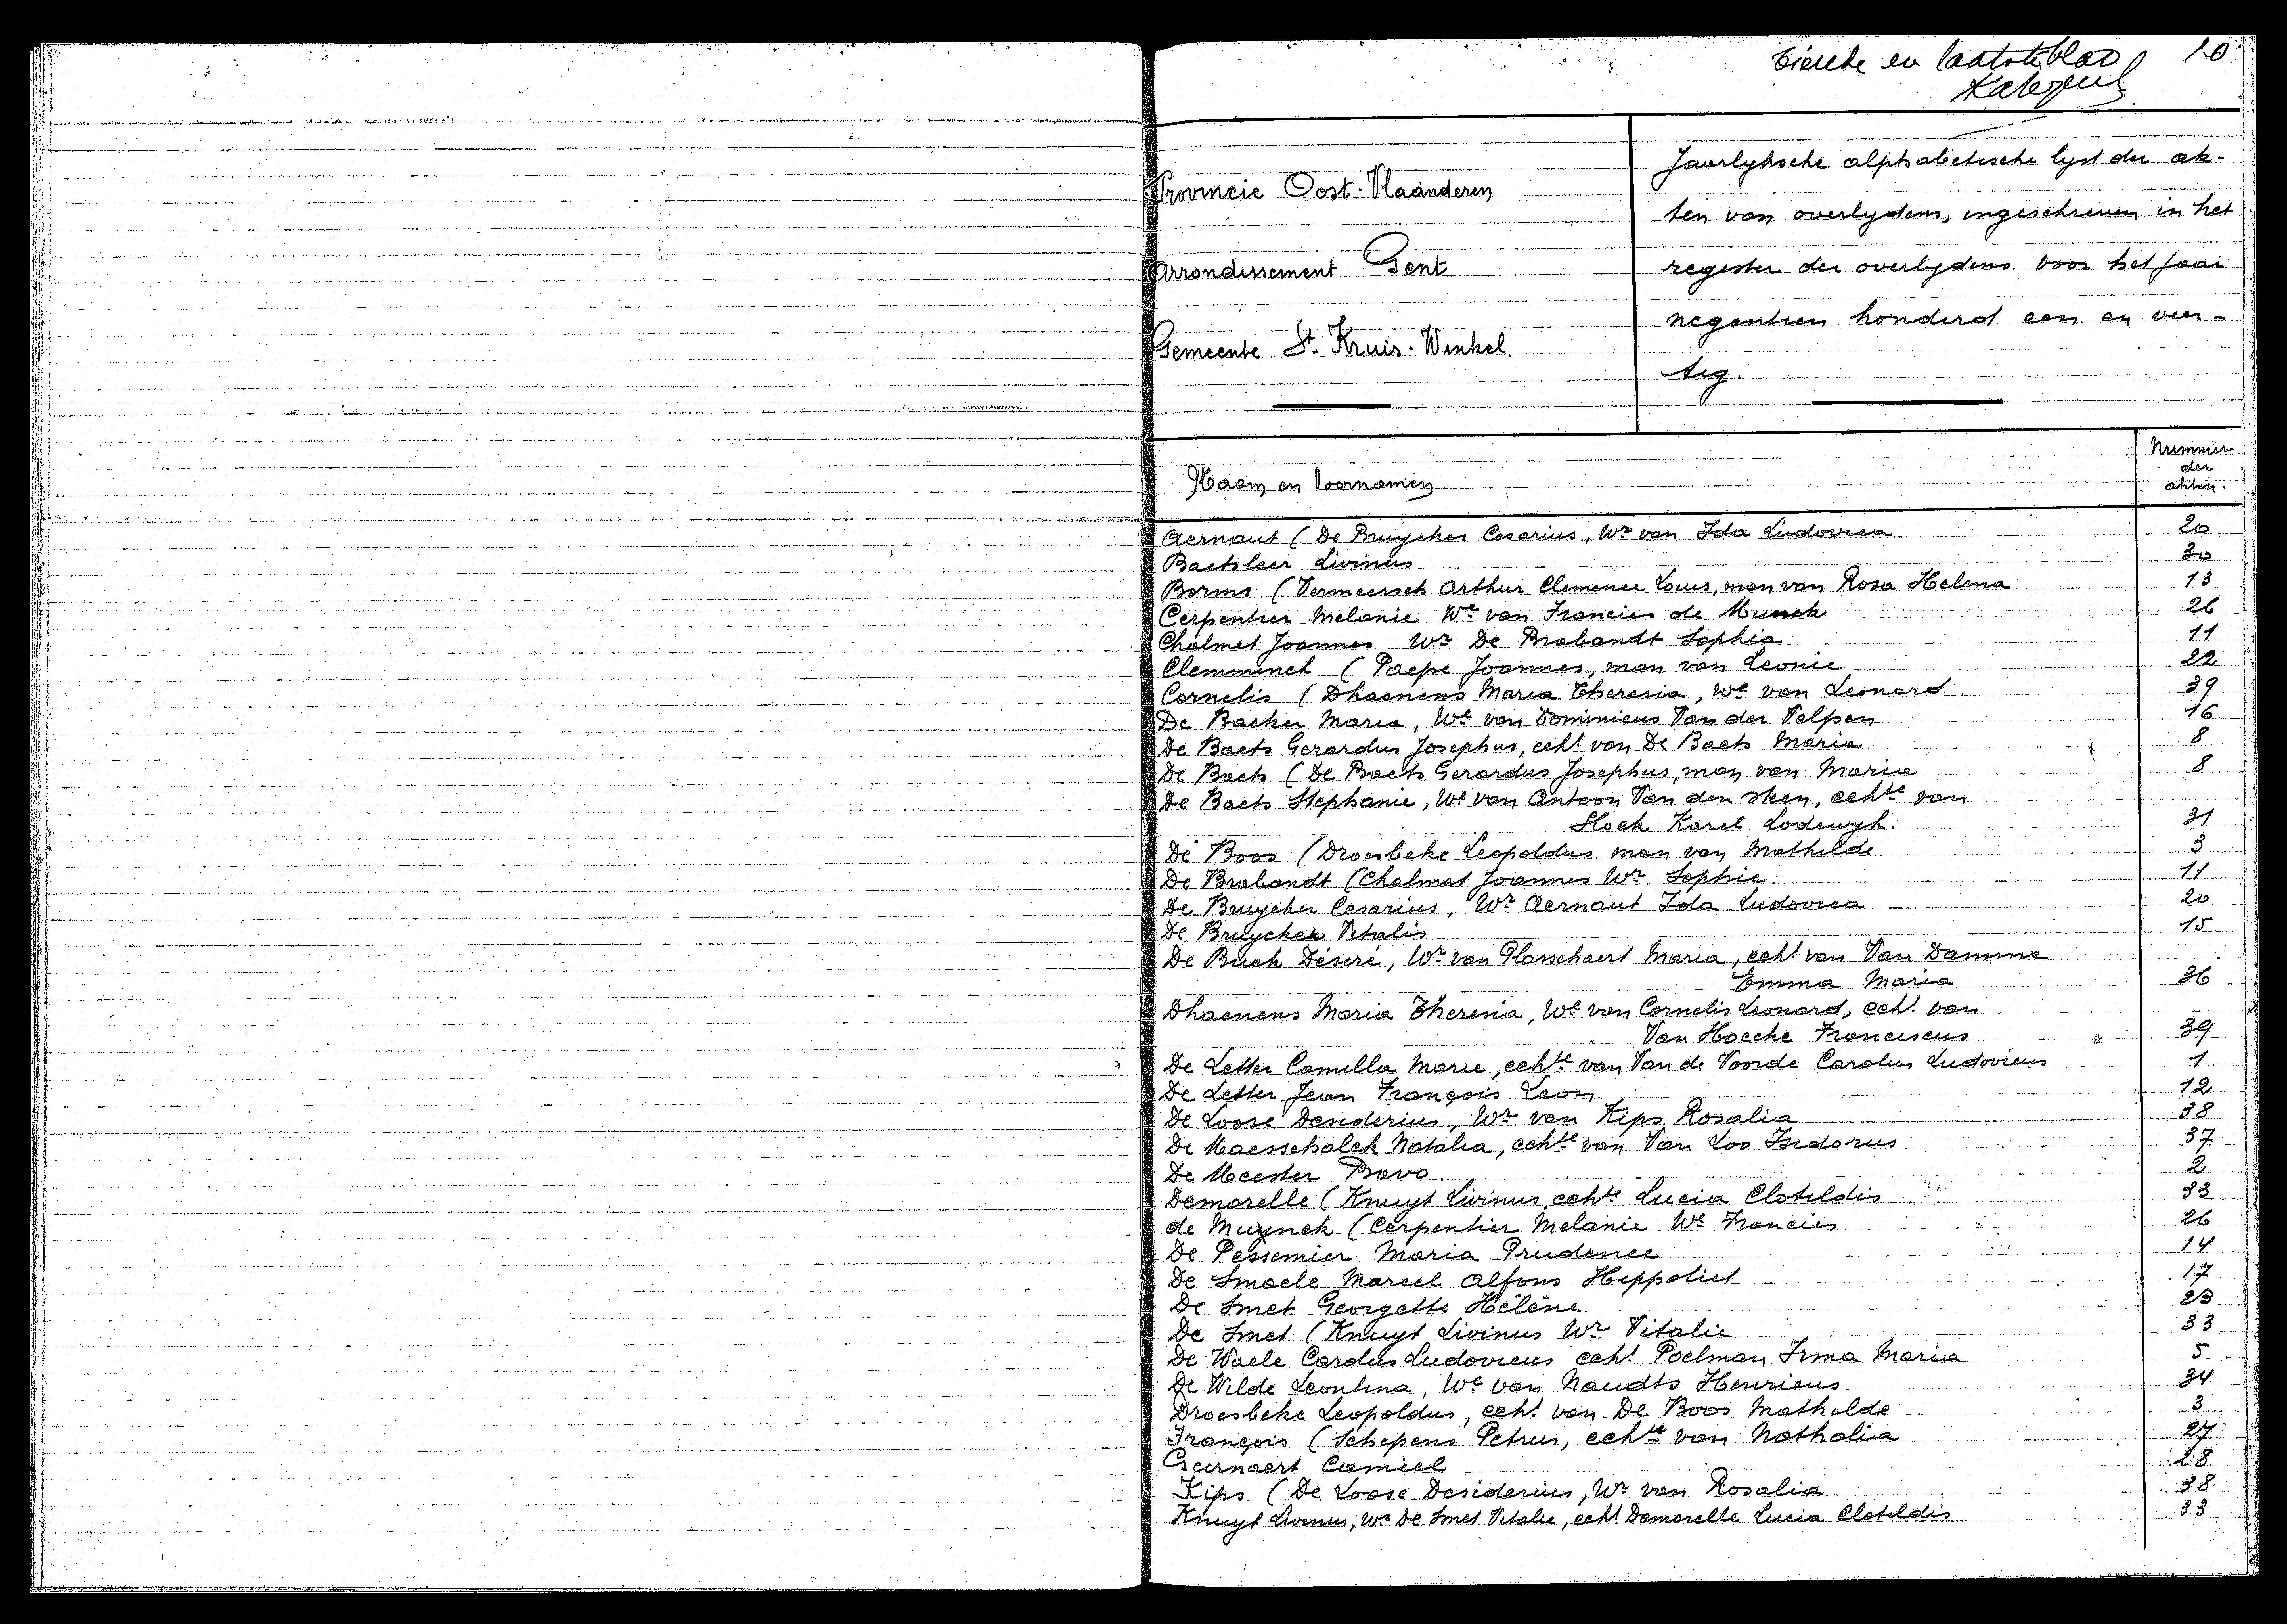 tiende en laatste blad 10
Provincie Oost-Vlaanderen
Arrondissement Gent
Gemeente St. Kruis-Winkel.
Jaarlyksche alphabetische lyst der ak-
ten van overlydens, ingeschreven in het
register der overlydens voor het jaar
negentien honderd een en veer-
tig.
Naam en Voornamen
Nummer
der
akten.
Aernaut (De Bruycker Cesarius, Wr van Ida Ludovica 20
Baetsleer Livinus 30
Borms (Vermeersch Arthur Clemence Louis, man van Rosa Helena 13
Cerpentier Melanie We van Francies de Munck 26
Chalmet Joannes Wr De Brabandt Sophia 11
Clemminck (Paepe Joannes, man van Leonie 22
Cornelis (Dhaenens Maria Theresia, We van Leonard 39
De Backer Maria, We van Dominicus Van der Velpen 16
De Baets Gerardus Josephus, echt van De Baets Maria 8
De Baets (De Baets Gerardus Josephus, man van Maria 8
De Baets Stephanie, We van Antoon Van den Steen, echte van
Stock Karel Lodewyk. 31
De Boos (Droesbeke Leopoldus man van Mathilde 3
De Brabandt (Chalmet Joannes Wr Sophie 11
De Bruycker Cesarius, Wr Aernaut Ida Ludovica 20
De Bruycker Vitalis 15
De Buck Désiré, Wr van Plasschaert Maria, echt van Van Damme
Emma Maria 36
Dhaenens Maria Theresia, We van Cornelis Leonard, echt. van
Van Hoecke Franciscus 39
De Letter Camilla Marie, echte van Van de Voorde Carolus Ludovicus 1
De Letter Jean François Leon 12
De Loose Desiderius, Wr van Kips Rosalia 38
De Maesschalck Natalia, echte van Van Loo Isidorus. 37
De Meester Bavo. 2
Demarelle (Knuyt Livinus echte Lucia Clotildis 33
de Muynck (Cerpentier Melanie We Francies 26
De Pessemier Maria Prudence 14
De Smaele Marcel Alfons Heppoliet 17
De Smet Georgette Hélène. 23
De Smet (Knuyt Livinus Wr Vitalie 33
De Waele Carolus Ludovicus echt Poelman Irma Maria 5
De Wilde Leontina, We van Naudts Henricus. 34
Droesbeke Leopoldus, echt. van De Boos Mathilde 3
François (Schepens Petrus, echte van Nathalia 27
Geernaert Camiel 28
Kips (De Loose Desiderius, Wr van Rosalia 38
Knuyt Livinus, Wr De Smet Vitalie, echt Demarelle Lucia Clotildis 33